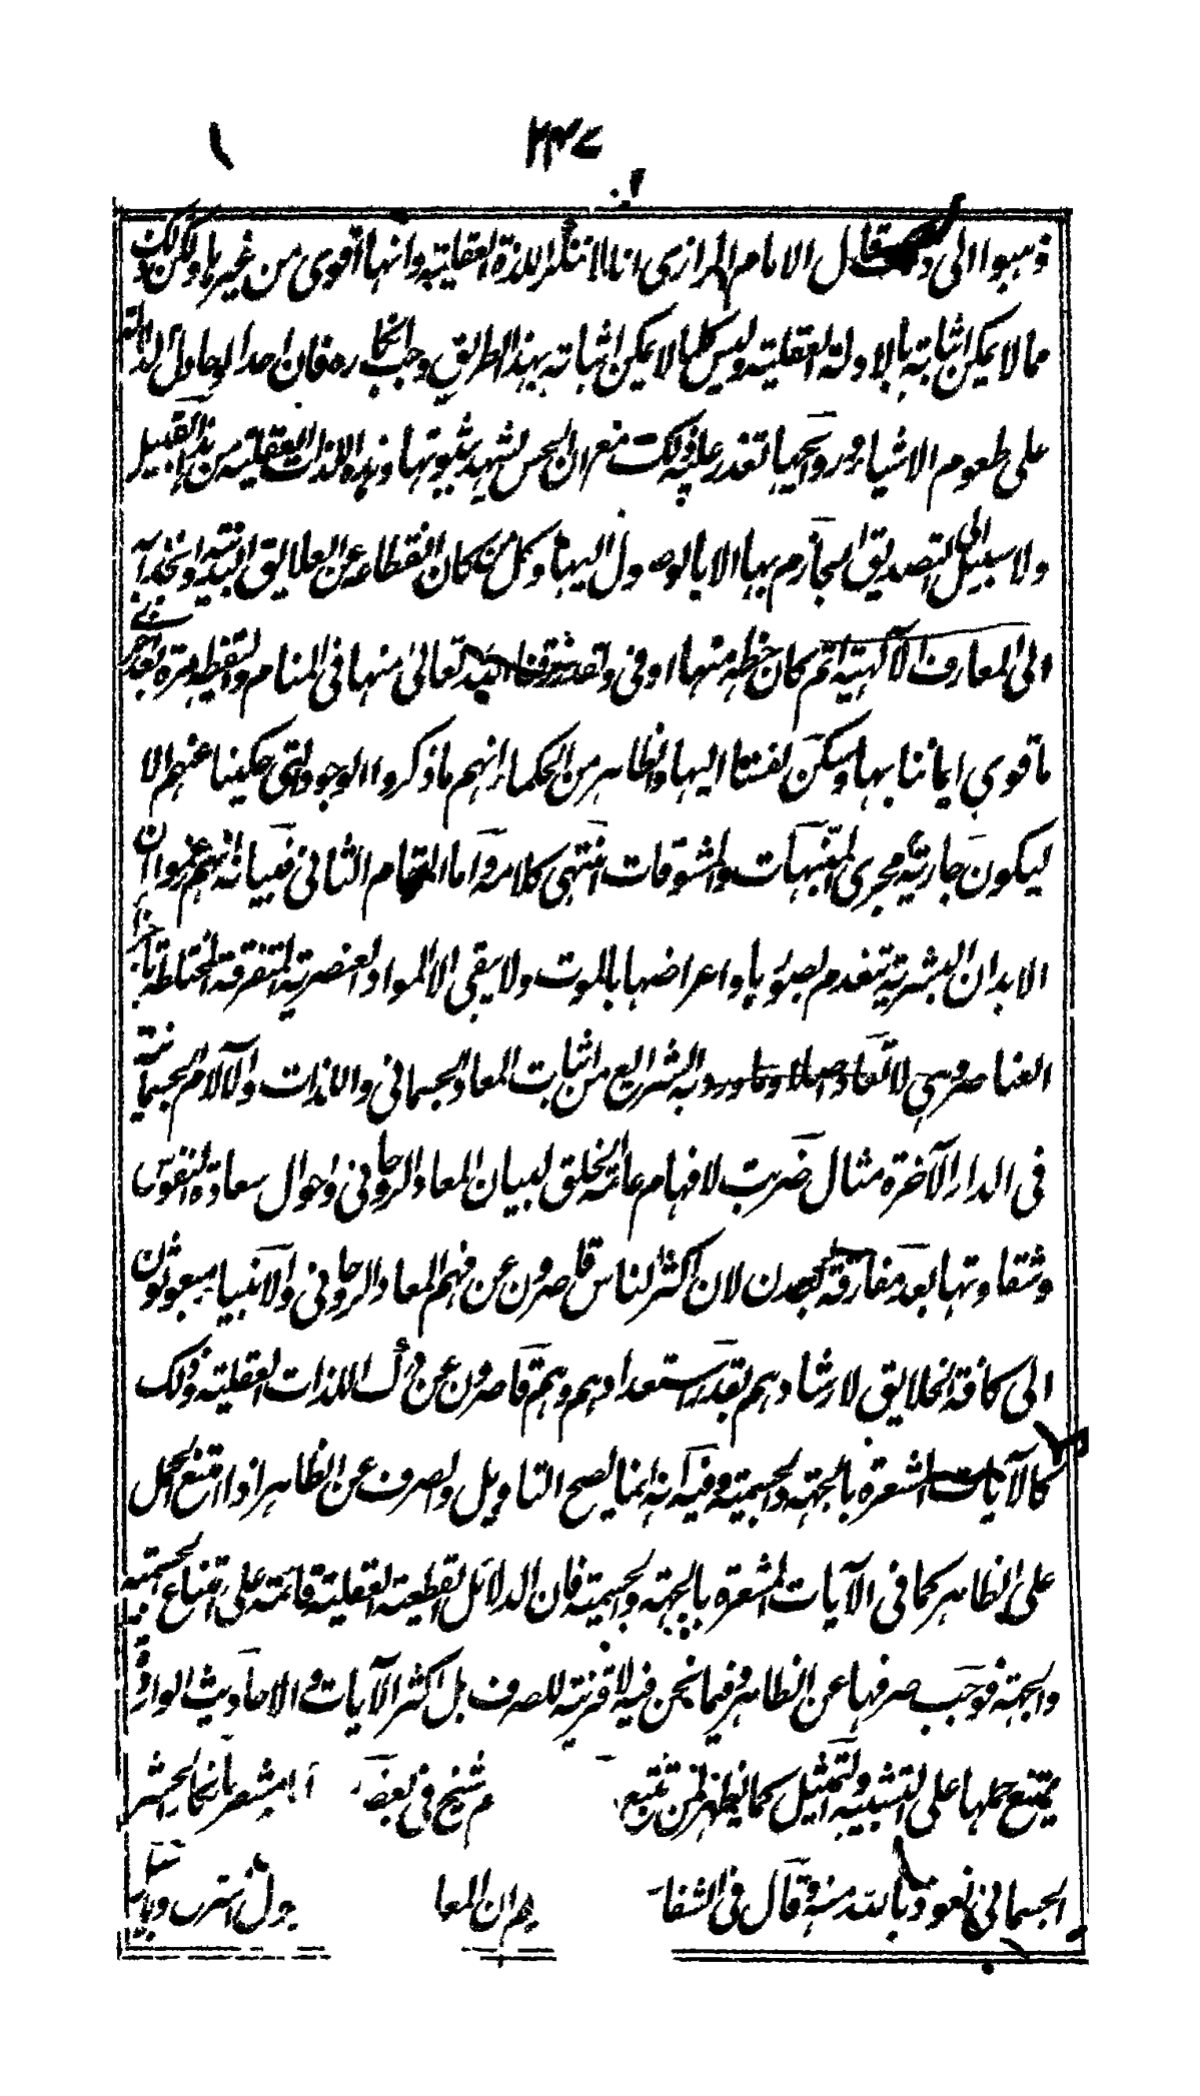 ٢٣٧
١
ذهبوا الى قال الامام الرازى انا لا ننكر اللذة العقلية وانها اقوى من غيرها ولكن ذلك
مما لا يمكن اثباته بالادلة العقلية وليس كلما لا يمكن اثباته بهذا الطريق وجب انكاره فان احدا لو حاول الدلالة
على طعوم الاشياء وروايحها تعذر عليه ذلك مع ان الحس لشهيد بثبوتها وهذه اللذات العقلية من هذا القبيل
ولا سبيل الى التصديق الجازم بها الا بالوصول اليها وكل من كان انقطاعه عن العلايق البدنية وانجذابه
الى المعارف الآلهية اتم كان حظه منها اوفى ولقد تعالى منها فى المنام واليقظة مرة بعد اخرى
ما قوى ايماننا بها وسكن نفسنا اليها والظاهر من الحكماء انهم ما ذكروا الوجوه التى حكينا عنهم الا
ليكون جارية مجرى المنبهات والمشوقات انتهى كلامه واما المقام الثانى فبيانه انهم زعموا ان
الابدان البشرية تنعدم بصورها واعراضها بالموت ولا يبقى الا المواد العنصرية المتفرقة المختلطة
العناصر وهى لا تعاد اصلا وما ورد به الشرايع من اثبات المعاد الجسمانى واللذات والآلام الجسمانية
فى الدار الآخرة مثال ضربت لافهام عامة الخلق لبيان المعاد الروحانى واحوال سعادة النفوس
وشقاوتها بعد مفارقة البدن لان اكثر الناس قاصرون عن فهم المعاد الروحانى والانبياء مبعوثون
الى كافة الخلايق لارشادهم بقدر استعدادهم وهم قاصرون عن درك اللذات العقلية وذلك
كالآيات المشعرة بالجهة والجسمية وفيه انه انما يصح التاويل والصرف عن الظاهر اذا امتنع الحمل
على الظاهر كما فى الآيات المشعرة بالجهة والجسمية فان الدلائل القطعية العقلية قائمة على امتناع الجسمية
والجهة فوجب صرفها عن الظاهر وفيما نحن فيه لا قرينة للصرف بل اكثر الآيات والاحاديث الواردة
يمتنع حملها على التشبيه والتمثيل كما يظهر لمن تتبع الشيخ فى بعض مشعر بانكار الحشر
الجسمانى نعوذ بالله منه وقال فى الشفا ان المعا